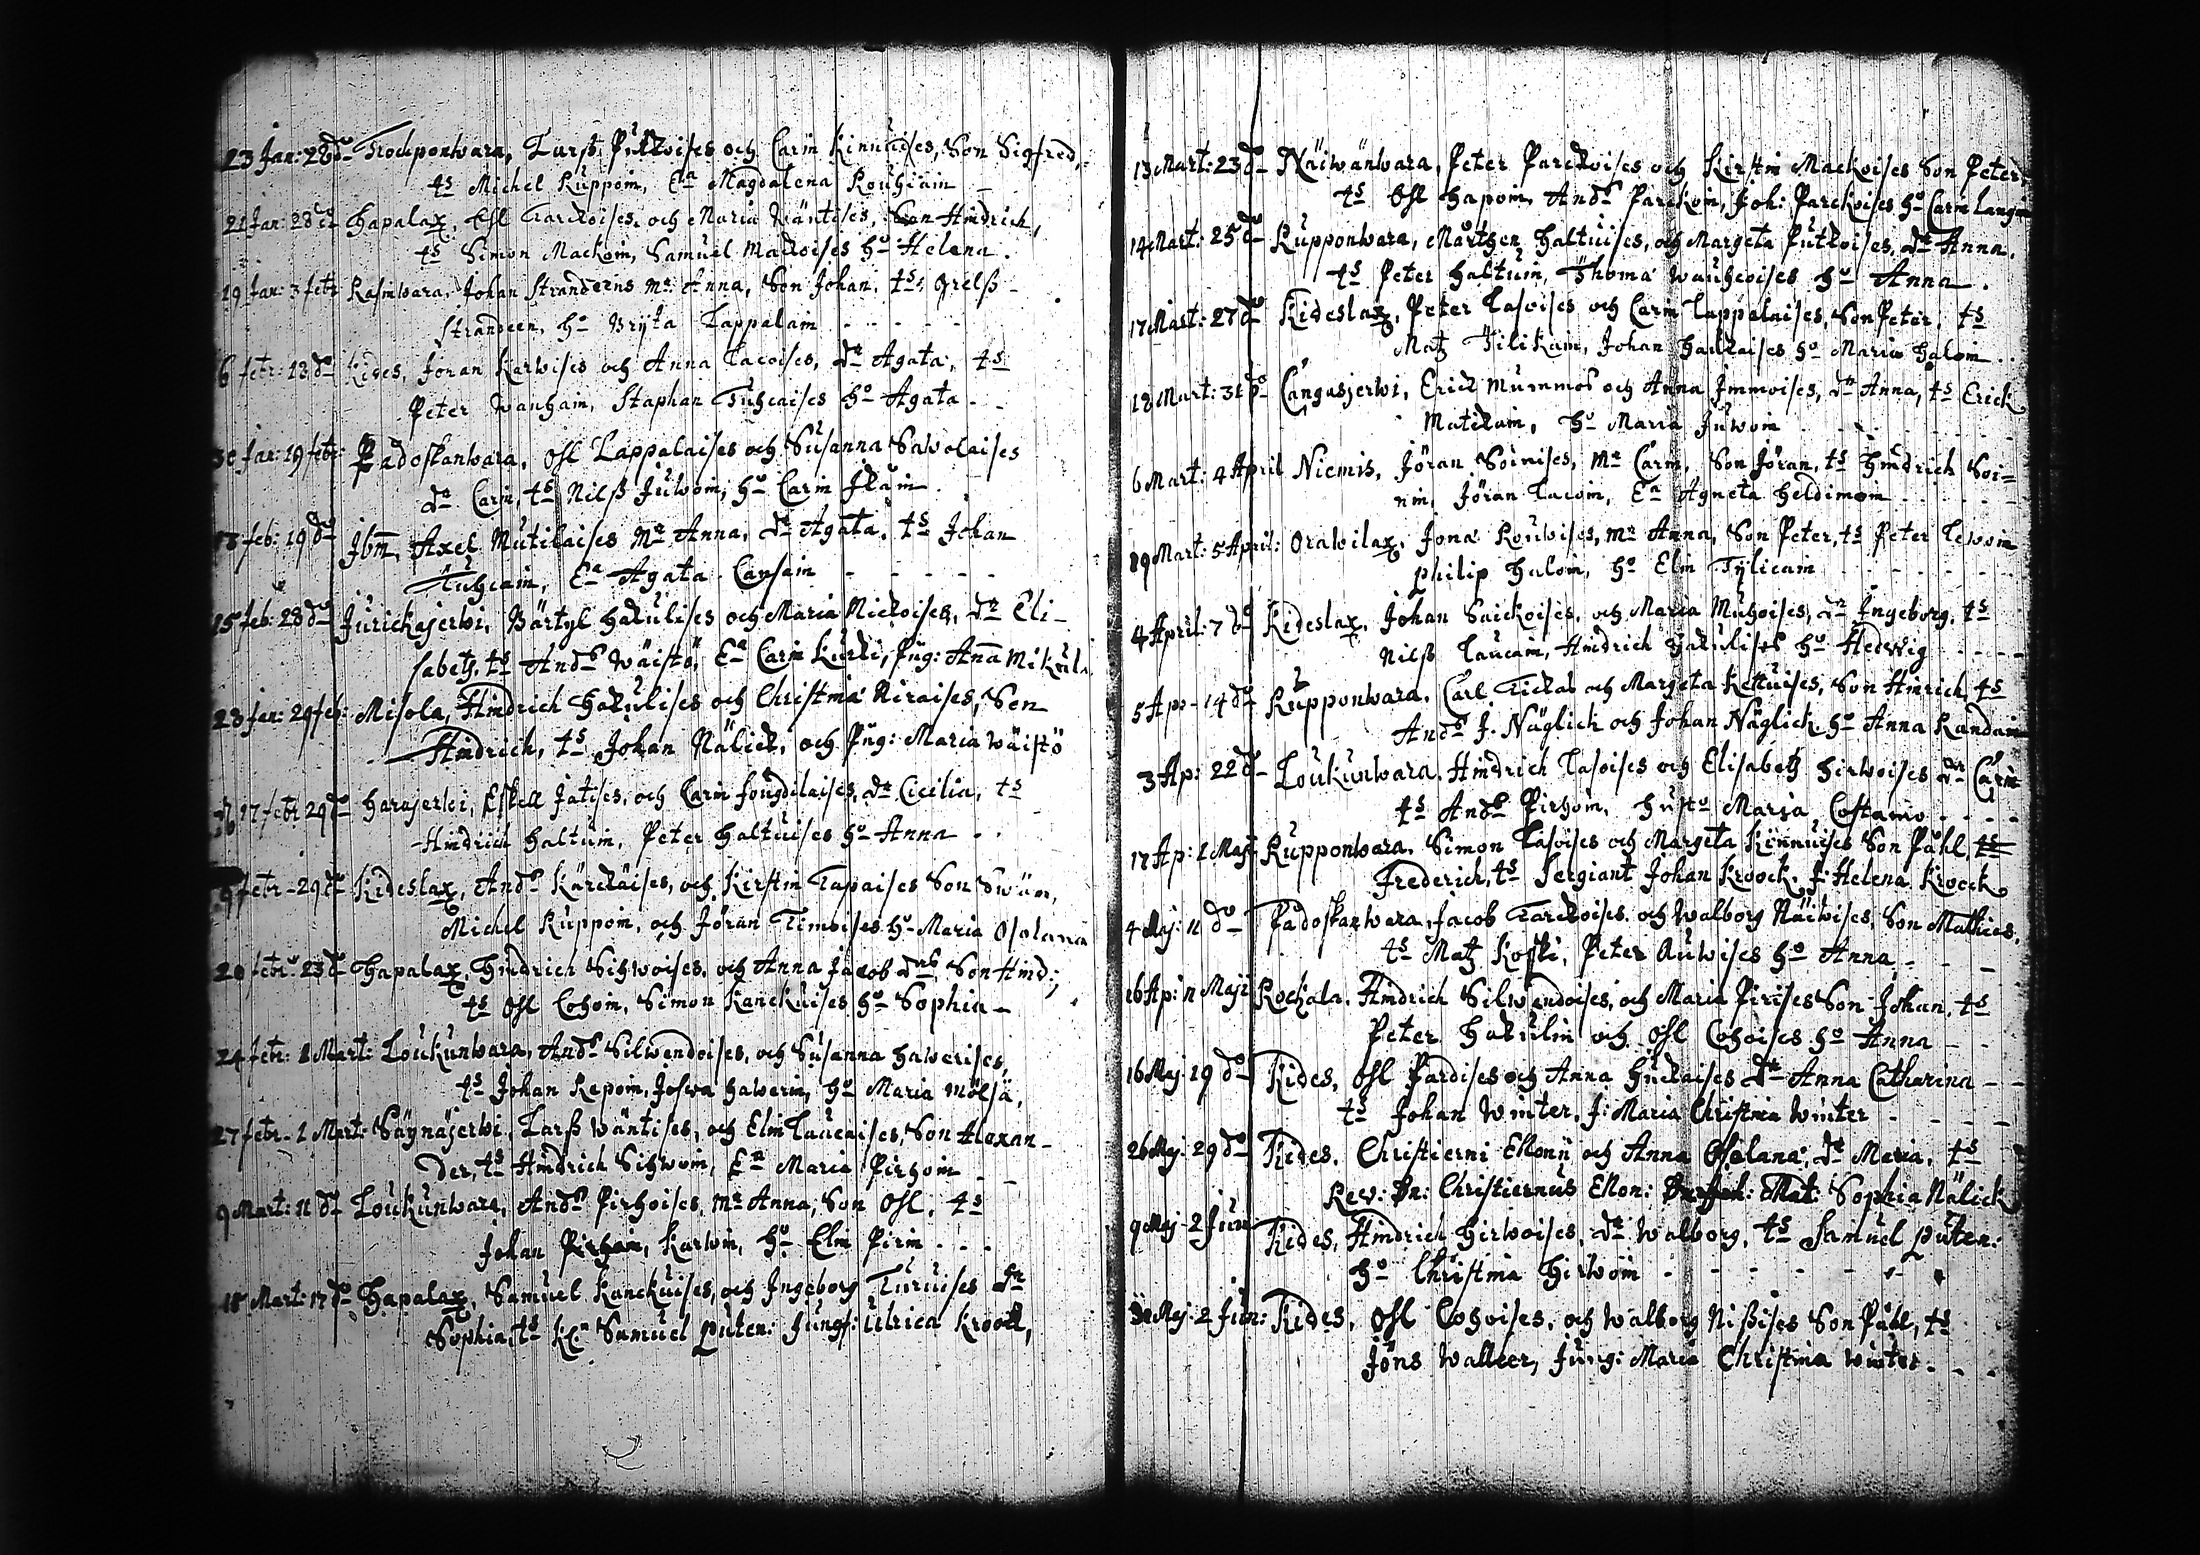 23 Jan: 28 do Trochponwara, Larß Putkoises och Carin Kinnuises, Son Sigfred,
ts Michel Ruppoin, Ea Magdalena Rouhiain
21 Jan: 28 do Hapalax, Ohl Karckoises. och Maria Wäntises, Son Hindrich,
ts Simon Mackoin, Samuel Mackoises ho Helena.
19 Jan: 3 febr Rasinwara, Johan Stranderns mr Anna, Son Johan, ts, Grelß
Strandeen, ho Brÿta Lappalain
6 febr: 13 do Kides, Jöran Karwises och Anna Lacoises, dr Agata, ts
Peter Wauhain, Staphan Tuhcaises ho Agata
30 Jan: 19 febr: Padoskanwara, Ohl Lappalaises och Susanna Sawolaises
dr Carin, ts Nilß Juwoin, ho Carin Ikäin
18 feb: 19 do Ibm, Axel Mutilaises mr Anna, dr Agata, ts Johan
Tuhcain, Ea Agata Cansain
15 feb: 28 do Jurickajerwi, Bärtyl Hakulises och Maria Nickoises, dr Eli-
sabeth, ts Andrs Wäistö, Ea Carin Kurki, Pug: Anna Mikul.
23 Jan: 29 feb: Misola, Hindrich Hakulises och Christina Niraises, Son
Hindrich, ts Johan Nälick, och Pug: Maria Wäistö
17 febr 29 do Harajerwi, Eskell Jatises, och Carin Fougdilaises, dr Cicilia, ts
Hindrich Haltuin, Peter Haltuises ho Anna
febr - 29 do Kideslax, Andrs Kärckäises, och Kirstin Tapaises Son Swän,
Michel Ruppoin, och Jöran Timoises ho Maria Osolana
20 febr: 23 do Hapalax, Hindrich Sihwoises, och Anna Jacob drs, Son Hind:
ts Ohl Cohoin, Simon Kanckuises ho Sophia
24 febr: 1 Mart: Loukunwara, Andrs Silwendoises, och Susanna Hawerises,
ts Johan Repoin, Joswa Hawerin, ho Maria Mölsä,
27 febr - 1 Mart: Säynäjerwi, Larß Wäntises, och Elin Laucaises, Son Alexan-
der, ts Hindrich Sihwoin, Ea Maria Pirhoin
9 Mart: 11 do Loukunwara, Andrs Pirhoises, mr Anna, Son Ohl, ts
Johan Pirhoin, Karwin, ho Elin Pirin
15 Mart: 17 do Hapalax, Samuel Kanckuises, och Ingeborg Turuises dr
Sophia, ts Kln Samuel Puten: Jungf: Ulrica Krook,
13 Mart: 23 do Näiwänwara, Peter Parckoises och Kirstin Mackoises Son Peter,
ts Ohl Hapoin, Andrs Parckoin, Joh: Parckoises ho Carin Langin
14 Mart: 25 do Rupponwara, Mårthen Haltuises, och Margeta Putkoises, dr Anna,
ts Peter Haltuin, Thoma Wauhcoises ho Anna.
17 Mart: 27 do Kideslax, Peter Lasoises och Carin Lappalaises, Son Peter, ts
Matz Tilikain, Johan Haukaises ho Maria Haloin
18 Mart: 31 do Cangasjerwi, Erick Mummos och Anna Immoises, dr Anna, ts Erick
Matikain, ho Maria Juwoin
6 Mart: 4 April Niemis, Jöran Soinises, mr Carin, Son Jöran, ts Hindrich Soi=
nin, Jöran Lacoin, Ea Agneta Heldimoin
19 Mart: 5 April: Orawilax, Jona Rouwises, mr Anna, Son Peter, ts Peter Lewoin
Philip Haloin, ho Elin Tÿlicain
4 April: 7 do Kideslax, Johan Saickoises, och Maria Muhoises, dr Ingeborg, ts
Nilß Laucain, Hindrich Hakulises ho Hedwig
5 Apr - 14 do Rupponwara, Carl Tickas och Margeta Kettuises, Son Hinrich, ts
Andrs J. Näglich och Johan Näglick, ho Anna Randain
3 Ap: 22 do Loukunwara, Hindrich Lasoises och Elisabeth Hirwoises dr Carin
ts Andrs Pirhoin, Husto Maria Costamo
17 Ap: 1 Maji Rupponwara, Simon Lasoises och Margeta Kinnuises Son Påhl, ts
Frederich, ts Sergiant Johan Kroock, J: Helena Kroock
4 Maj: 11 do Padoskanwara, Jacob Karckoises, och Walborg Näiwises, Son Mathies,
ts Matz Koski, Peter Auwises ho Anna
16 Ap: 11 Maji Rochala, Hindrich Silwendoises, och Maria Pirises Son Johan, ts
Peter Hakulin och Ohl Cohoises ho Anna
16 Maj: 19 do Kides, Ohl Pardises och Anna Huckaises dr Anna Catharina
ts Johan Winter, J: Maria Christina Winter
26 Maj: 29 do Kides, Christierni Ellonii och Anna Osolana, dr Maria, ts
Rev: Dn: Christiernus Ellon: Mat: Sophia Nälick
9 Maj - 2 Jun Kides, Hindrich Hirwoises, dr Walborg, ts Samuel Puten:
ho Christina Hirwoin
30 Maj: 2 Jun: Kides, Ohl Cohoises, och Walborg Nißises Son Påhl, ts
Jöns Walleer, Jung: Maria Christina Winter